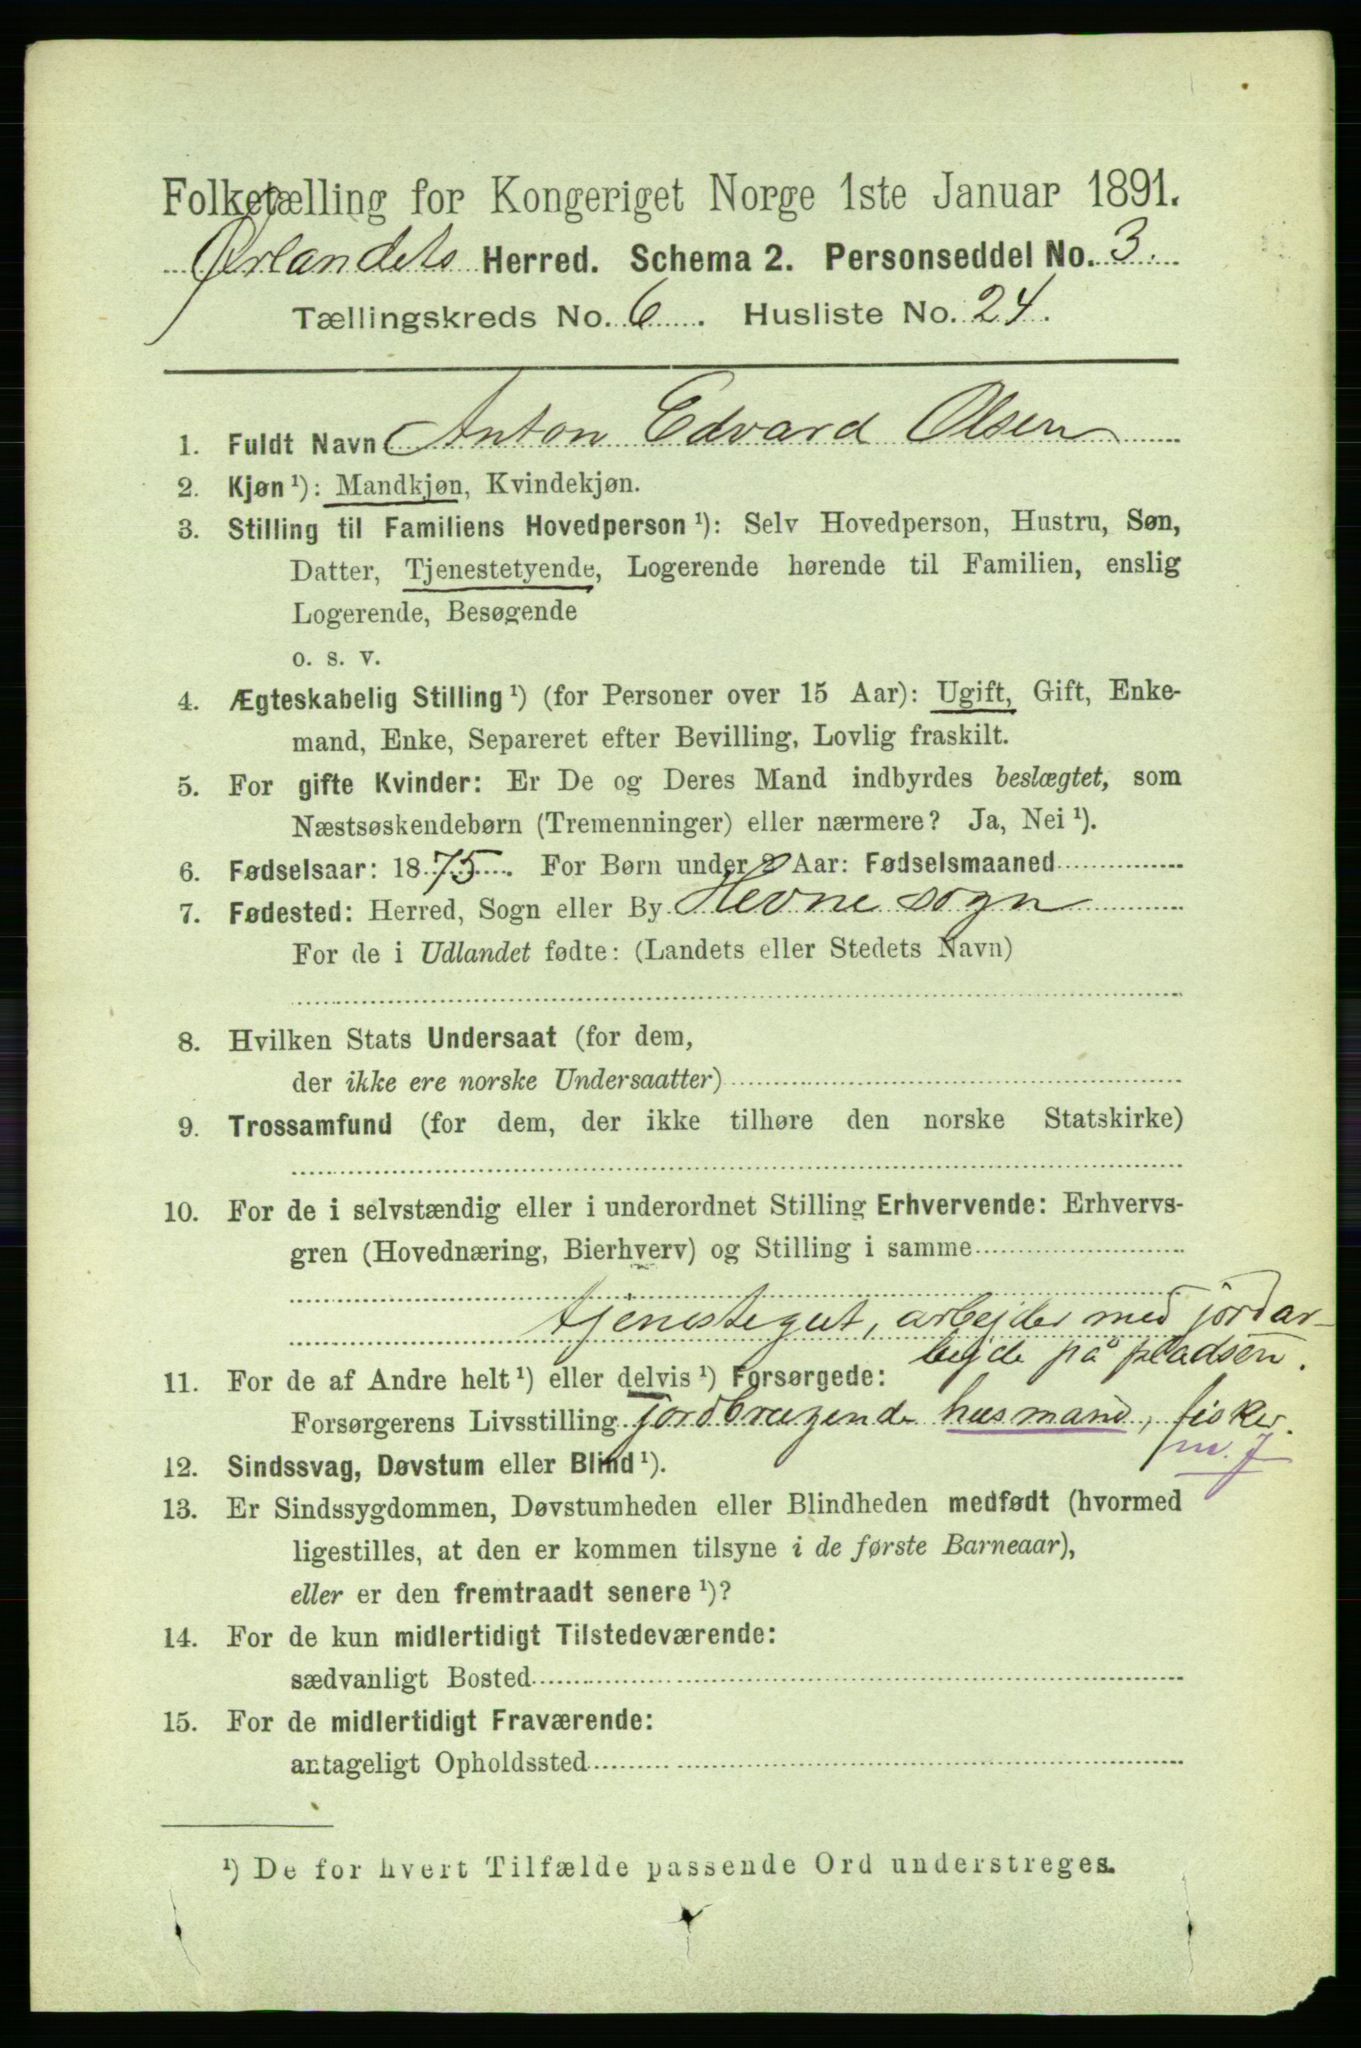 Folketælling for Kongeriget Norge 1ste Januar 1891.
Ørlandets Herred. Schema 2. Personseddel No. 3.
Tællingskreds No. 6. Husliste No. 24.
1. Fuldt Navn Anton Edvard Olsen
2. Kjøn ¹): Mandkjøn, Kvindekjøn.
3. Stilling til Familiens Hovedperson ¹): Selv Hovedperson, Hustru, Søn,
Datter, Tjenestetyende, Logerende hørende til Familien, enslig
Logerende, Besøgende
o. s. v.
4. Ægteskabelig Stilling ¹) (for Personer over 15 Aar): Ugift, Gift, Enke-
mand, Enke, Separeret efter Bevilling, Lovlig fraskilt.
5. For gifte Kvinder: Er De og Deres Mand indbyrdes beslægtet, som
Næstsøskendebørn (Tremenninger) eller nærmere? Ja, Nei ¹).
6. Fødselsaar: 1875. For Børn under 2 Aar: Fødselsmaaned
7. Fødested: Herred, Sogn eller By Hevne sogn
For de i Udlandet fødte: (Landets eller Stedets Navn)
8. Hvilken Stats Undersaat (for dem,
der ikke ere norske Undersaatter)
9. Trossamfund (for dem, der ikke tilhøre den norske Statskirke)
10. For de i selvstændig eller i underordnet Stilling Erhvervende: Erhvervs-
gren (Hovednæring, Bierhverv) og Stilling i samme
tjenestegut, arbejder med jordar-
bejde på pladsen.
11. For de af Andre helt ¹) eller delvis ¹) Forsørgede:
Forsørgerens Livsstilling jordbrugende husmand, fisker.
m. J
12. Sindssvag, Døvstum eller Blind ¹).
13. Er Sindssygdommen, Døvstumheden eller Blindheden medfødt (hvormed
ligestilles, at den er kommen tilsyne i de første Barneaar),
eller er den fremtraadt senere ¹)?
14. For de kun midlertidigt Tilstedeværende:
sædvanligt Bosted
15. For de midlertidigt Fraværende:
antageligt Opholdssted
¹) De for hvert Tilfælde passende Ord understreges.